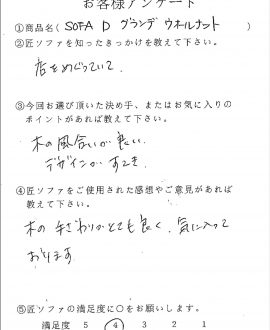 お客様アンケート
①商品名( SOFA D グランデ ウォールナット )
②匠ソファを知ったきっかけを教えて下さい。
店をめぐっていて、
③今回お選び頂いた決め手、またはお気に入りの
ポイントがあれば教えて下さい。
木の風合いが良い、
デザインがすてき
④匠ソファをご使用された感想やご意見があれば
教えて下さい。
木の手ざわりがとても良く、気に入って
おります
⑤匠ソファの満足度に○をお願いします。
満足度 5 4 3 2 1